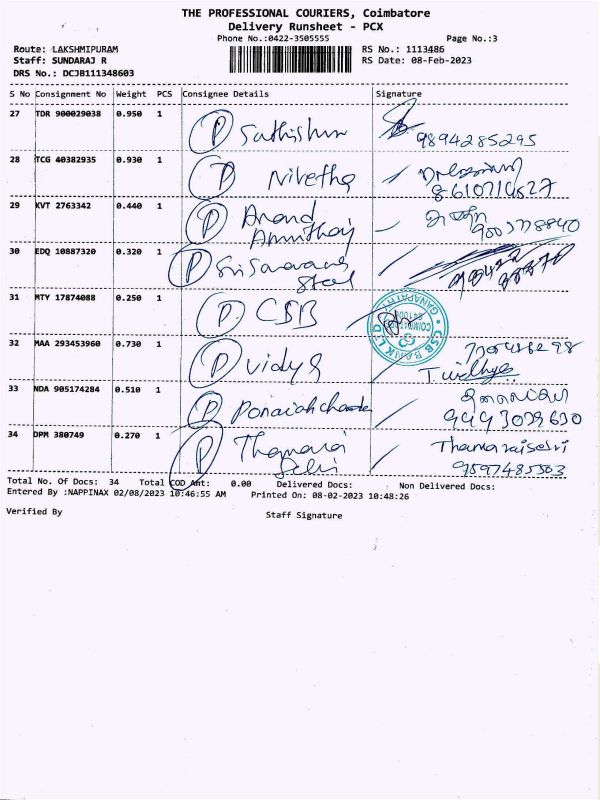 THE PROFESSIONAL COURIERS, Coimbatore
Delivery Runsheet - PCX
Phone No.:0422-3505555
Page No.:3
Route: LAKSHMIPURAM
RS No.: 1113486
Staff: SUNDARAJ R
RS Date: 08-Feb-2023
DRS No.: DCJB111348603
S No Consignment No Weight PCS Consignee Details Signature
27 TDR 900029038 0.950 1 P Sathishkumar
9894285295
28 TCG 40382935 0.930 1 P Nivetha
29 KVT 2763342 0.440 1 P Anand
30 EDQ 10887320 0.320 1 P Sri Saravana
Steel
31 MTY 17874088 0.250 1 P CSB
CSB BANK LTD GANAPATHY
32 MAA 293453960 0.730 1 P Vidya
T. Vidhya
33 NDA 905174284 0.510 1 P
34 DPM 380749 0.270 1 P Thamarai
Selvi
Thamaraiselvi
9597485503
Total No. Of Docs: 34 Total COD Amt: 0.00 Delivered Docs: Non Delivered Docs:
Entered By :NAPPINAX 02/08/2023 10:46:55 AM Printed On: 08-02-2023 10:48:26
Verified By
Staff Signature